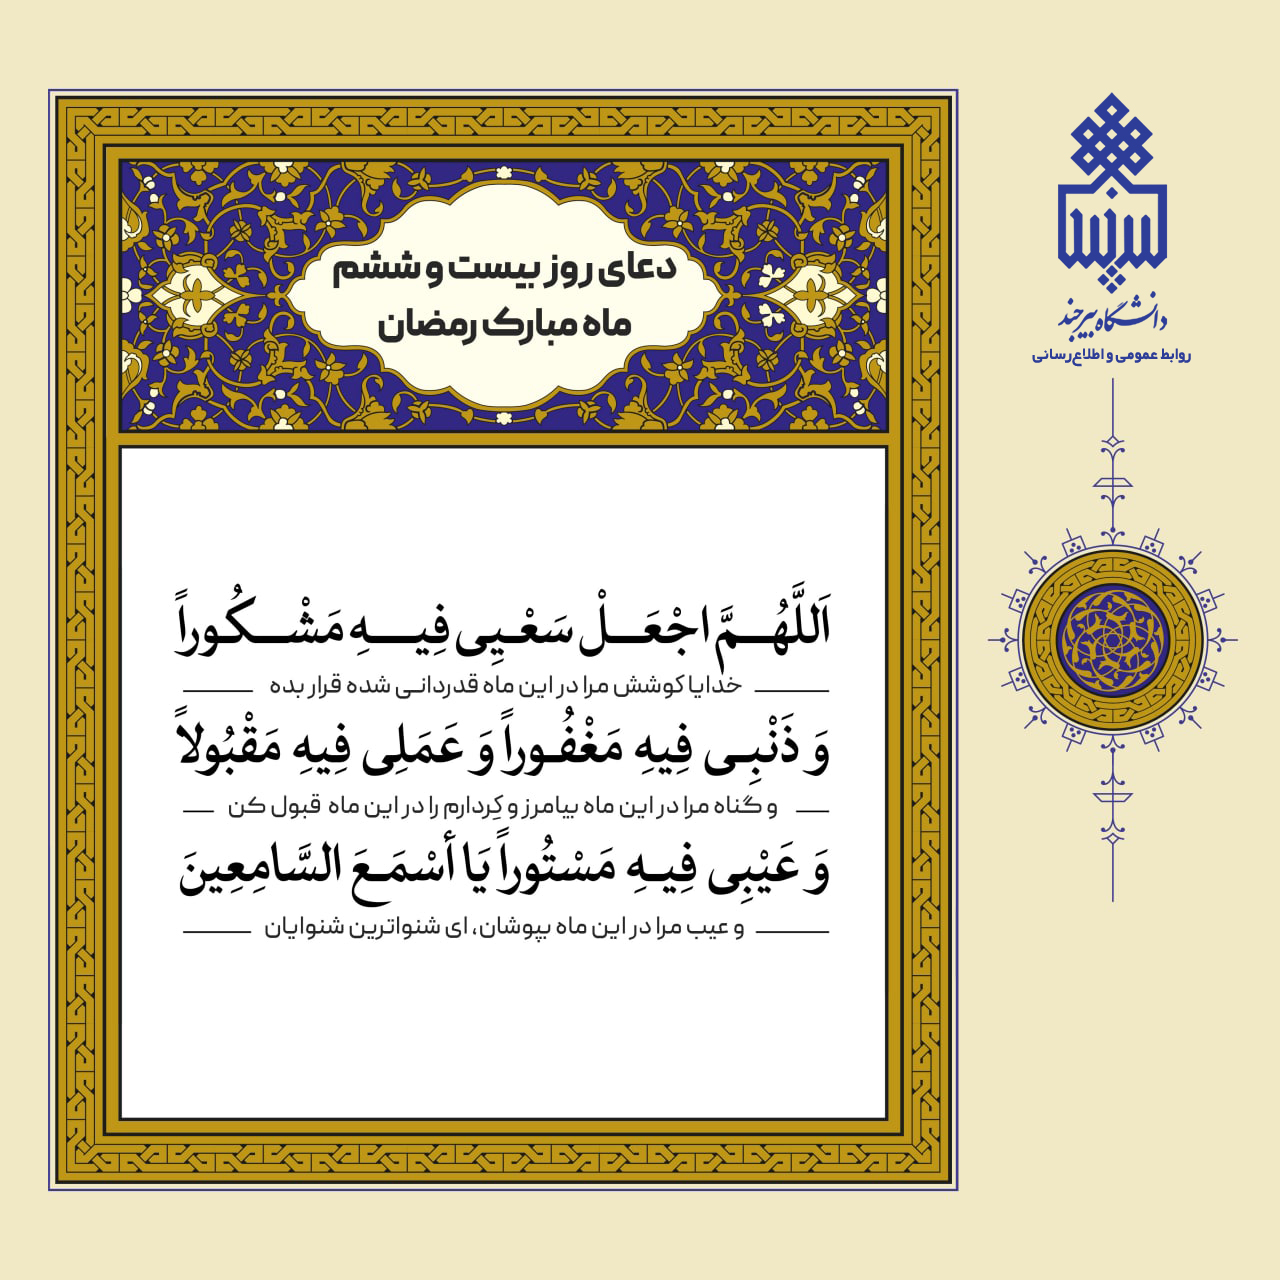 دعای روز بیست و ششم
ماه مبارک رمضان
اَللَّهُمَّ اجْعَلْ سَعْیِی فِیهِ مَشْکُوراً
خدایا کوشش مرا در این ماه قدردانی شده قرار بده
وَ ذَنْبِی فِیهِ مَغْفُوراً وَ عَمَلِی فِیهِ مَقْبُولاً
و گناه مرا در این ماه بیامرز و کِردارم را در این ماه قبول کن
وَ عَیْبِی فِیهِ مَسْتُوراً یَا أَسْمَعَ السَّامِعِینَ
و عیب مرا در این ماه بپوشان، ای شنواترین شنوایان
دانشگاه بیرجند
روابط عمومی و اطلاع‌رسانی